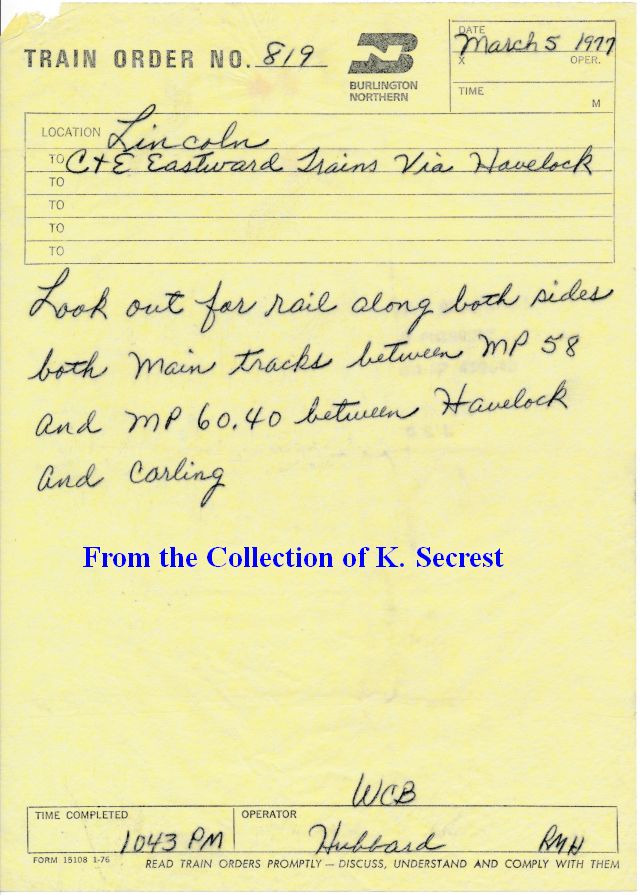 TRAIN ORDER NO. 819
BURLINGTON
NORTHERN
DATE
March 5 1977
X OPER.
TIME
M
LOCATION Lincoln
TO C+E Eastward Trains Via Havelock
TO
TO
TO
TO
Look out for rail along both sides
both main tracks between MP 58
and MP 60.40 between Havelock
and Carling
From the Collection of K. Secrest
WCB
TIME COMPLETED
1043 PM
OPERATOR
Hubbard RMH
FORM 15108 1-76
READ TRAIN ORDERS PROMPTLY — DISCUSS, UNDERSTAND AND COMPLY WITH THEM